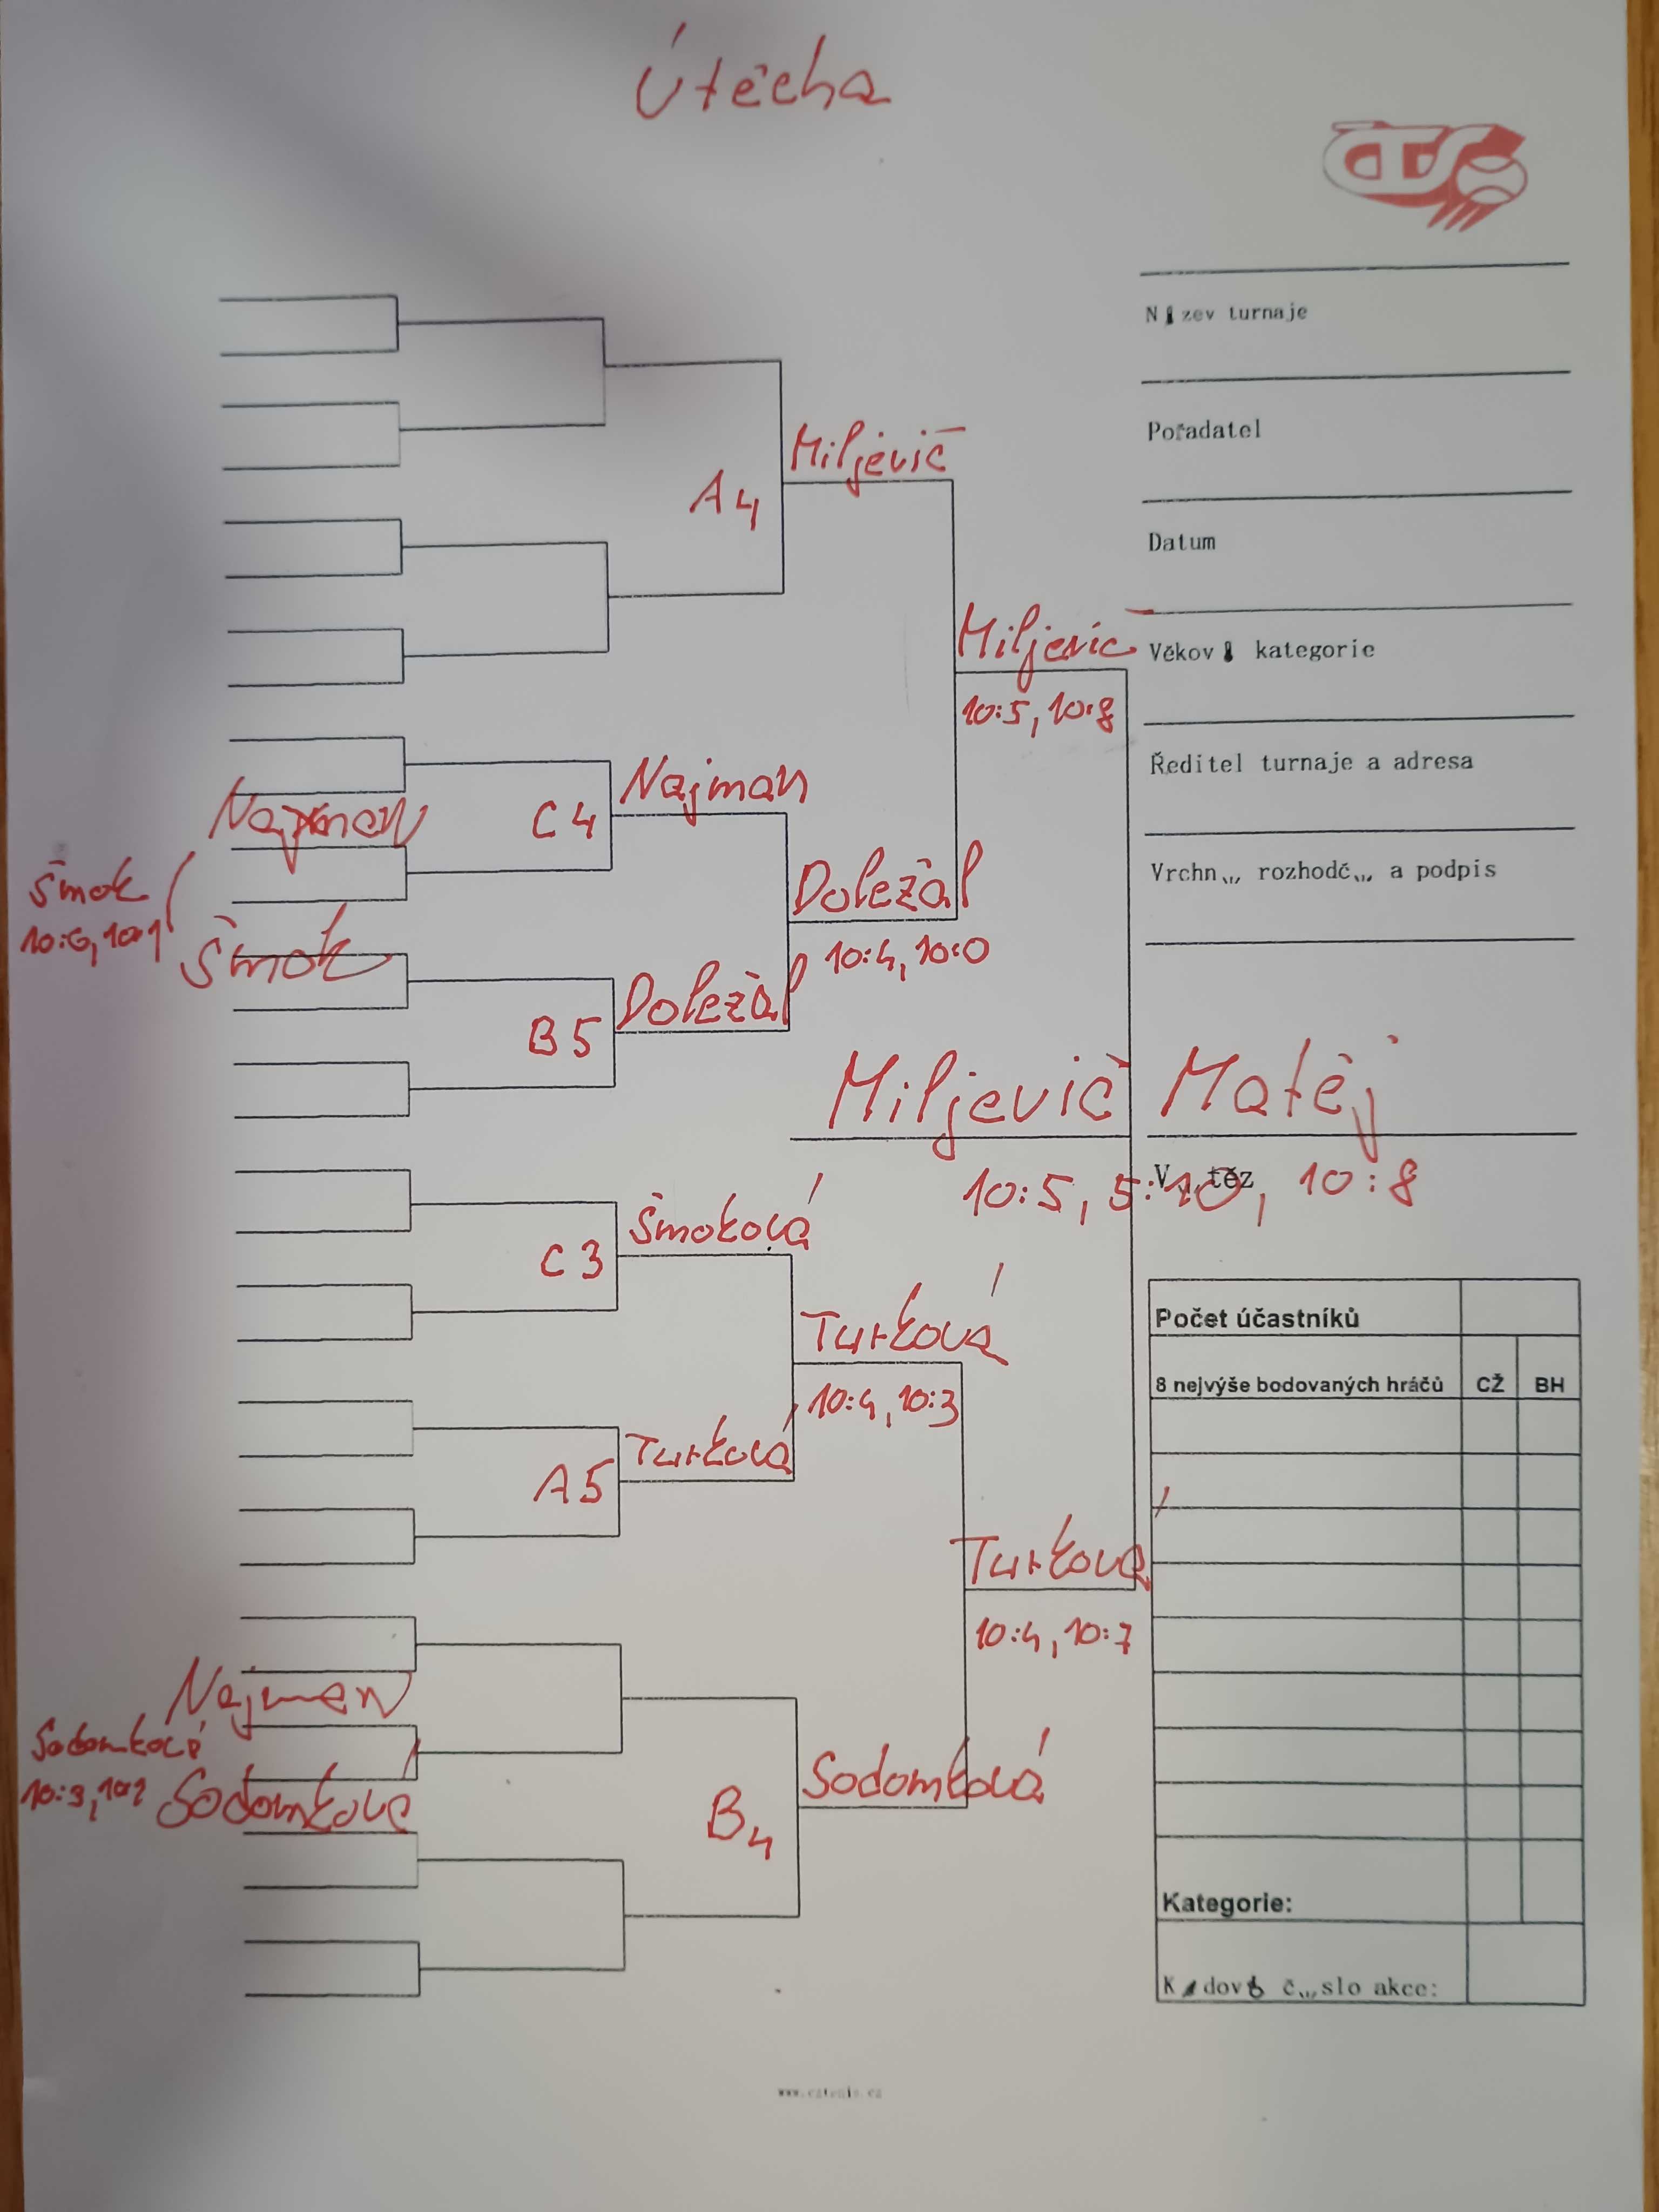 Útěcha
ČTS
Název turnaje
Pořadatel
Miljevič
A4
Datum
Miljevič
Věkov kategorie
10:5, 10:8
Ředitel turnaje a adresa
Najman
Najman
C4
Vrchn rozhodč a podpis
Šmok
Doležal
Šmok
10:4, 10:0
Doležal
B5
Miljevič Matěj
V těz
10:5, 5:10, 10:8
Šmoková
C3
Turková
Počet účastníků
8 nejvýše bodovaných hráčů CŽ BH
10:4, 10:3
Turková
A5
Turková
10:4, 10:7
Najman
Sodomková
Sodomková
Sodomková
B4
Kategorie:
K dov č slo akce:
www.cztenis.cz